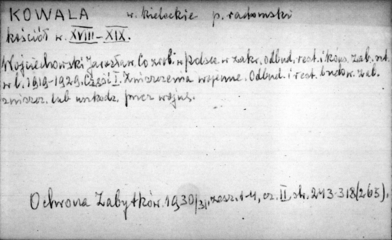 KOWALA w. kieleckie p. radomski
kościół w. XVIII-XIX.
Wojciechowski Jarosław. Co zrob. w Polsce w zakr. odbud., rest. i kons. zab. szt.
w l. 1919-1929. Część I. Zniszczenia wojenne. Odbud. i rest. budow. zab.
zniszcz. lub uszkodz. przez wojnę.
Ochrona Zabytków. 1930/31, zesz. 1-4, cz. II, str. 243-318 (265).